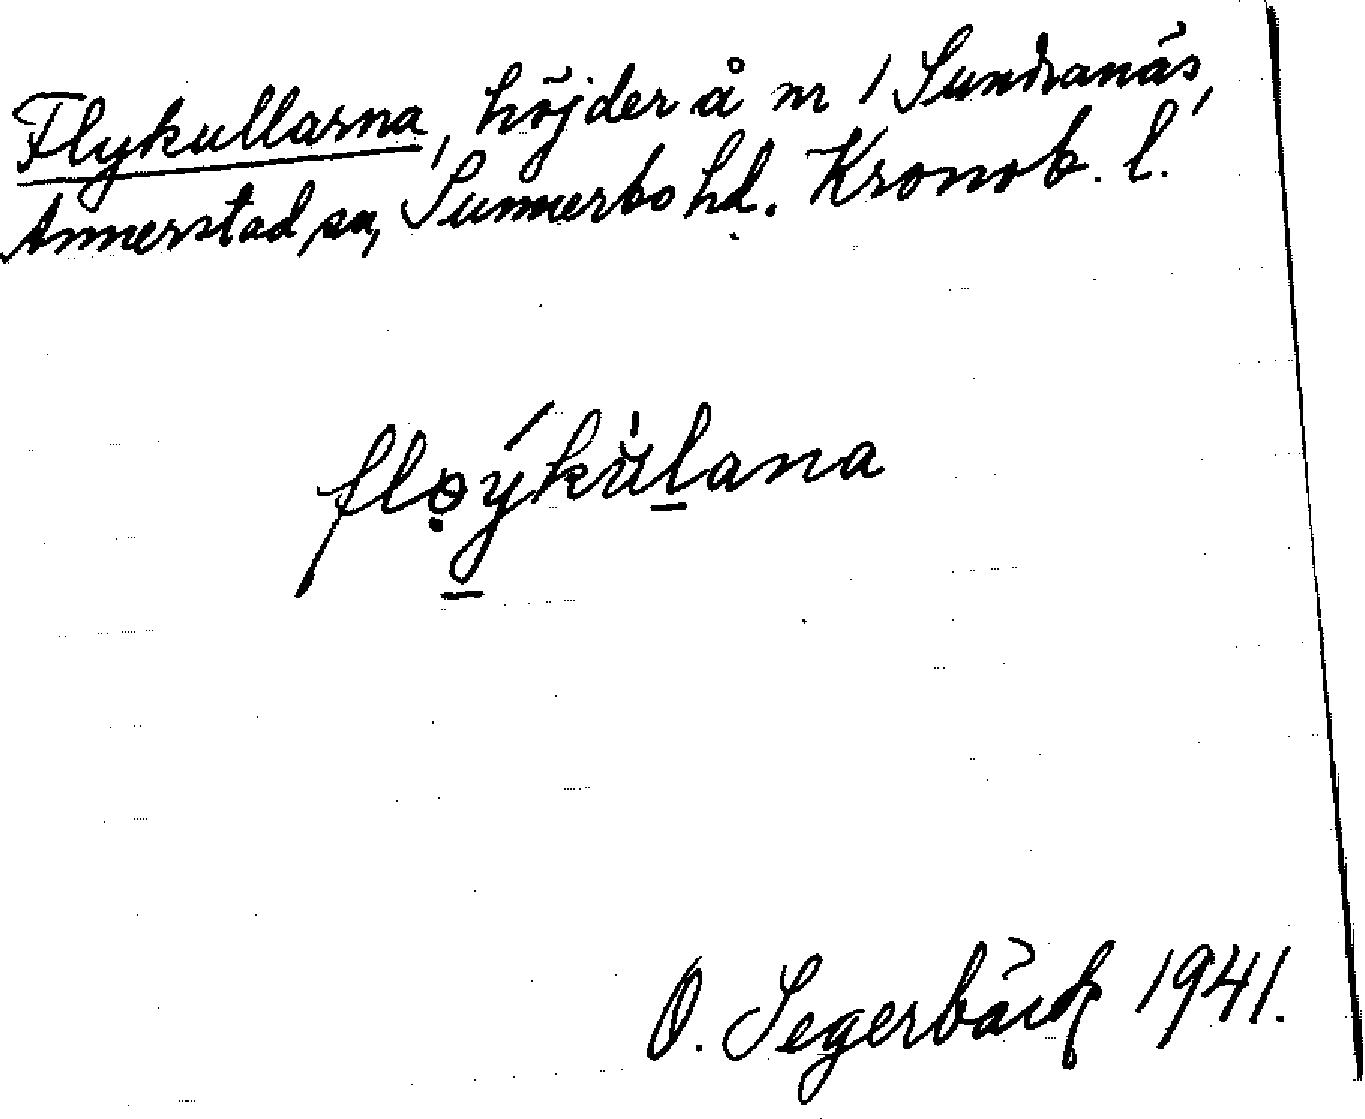 Flykullarna, höjder å nr 1 Sundranäs,
Annerstad sn, Sunnerbo hd. Kronob. l.
fløýkùlana
O. Segerbäck 1941.